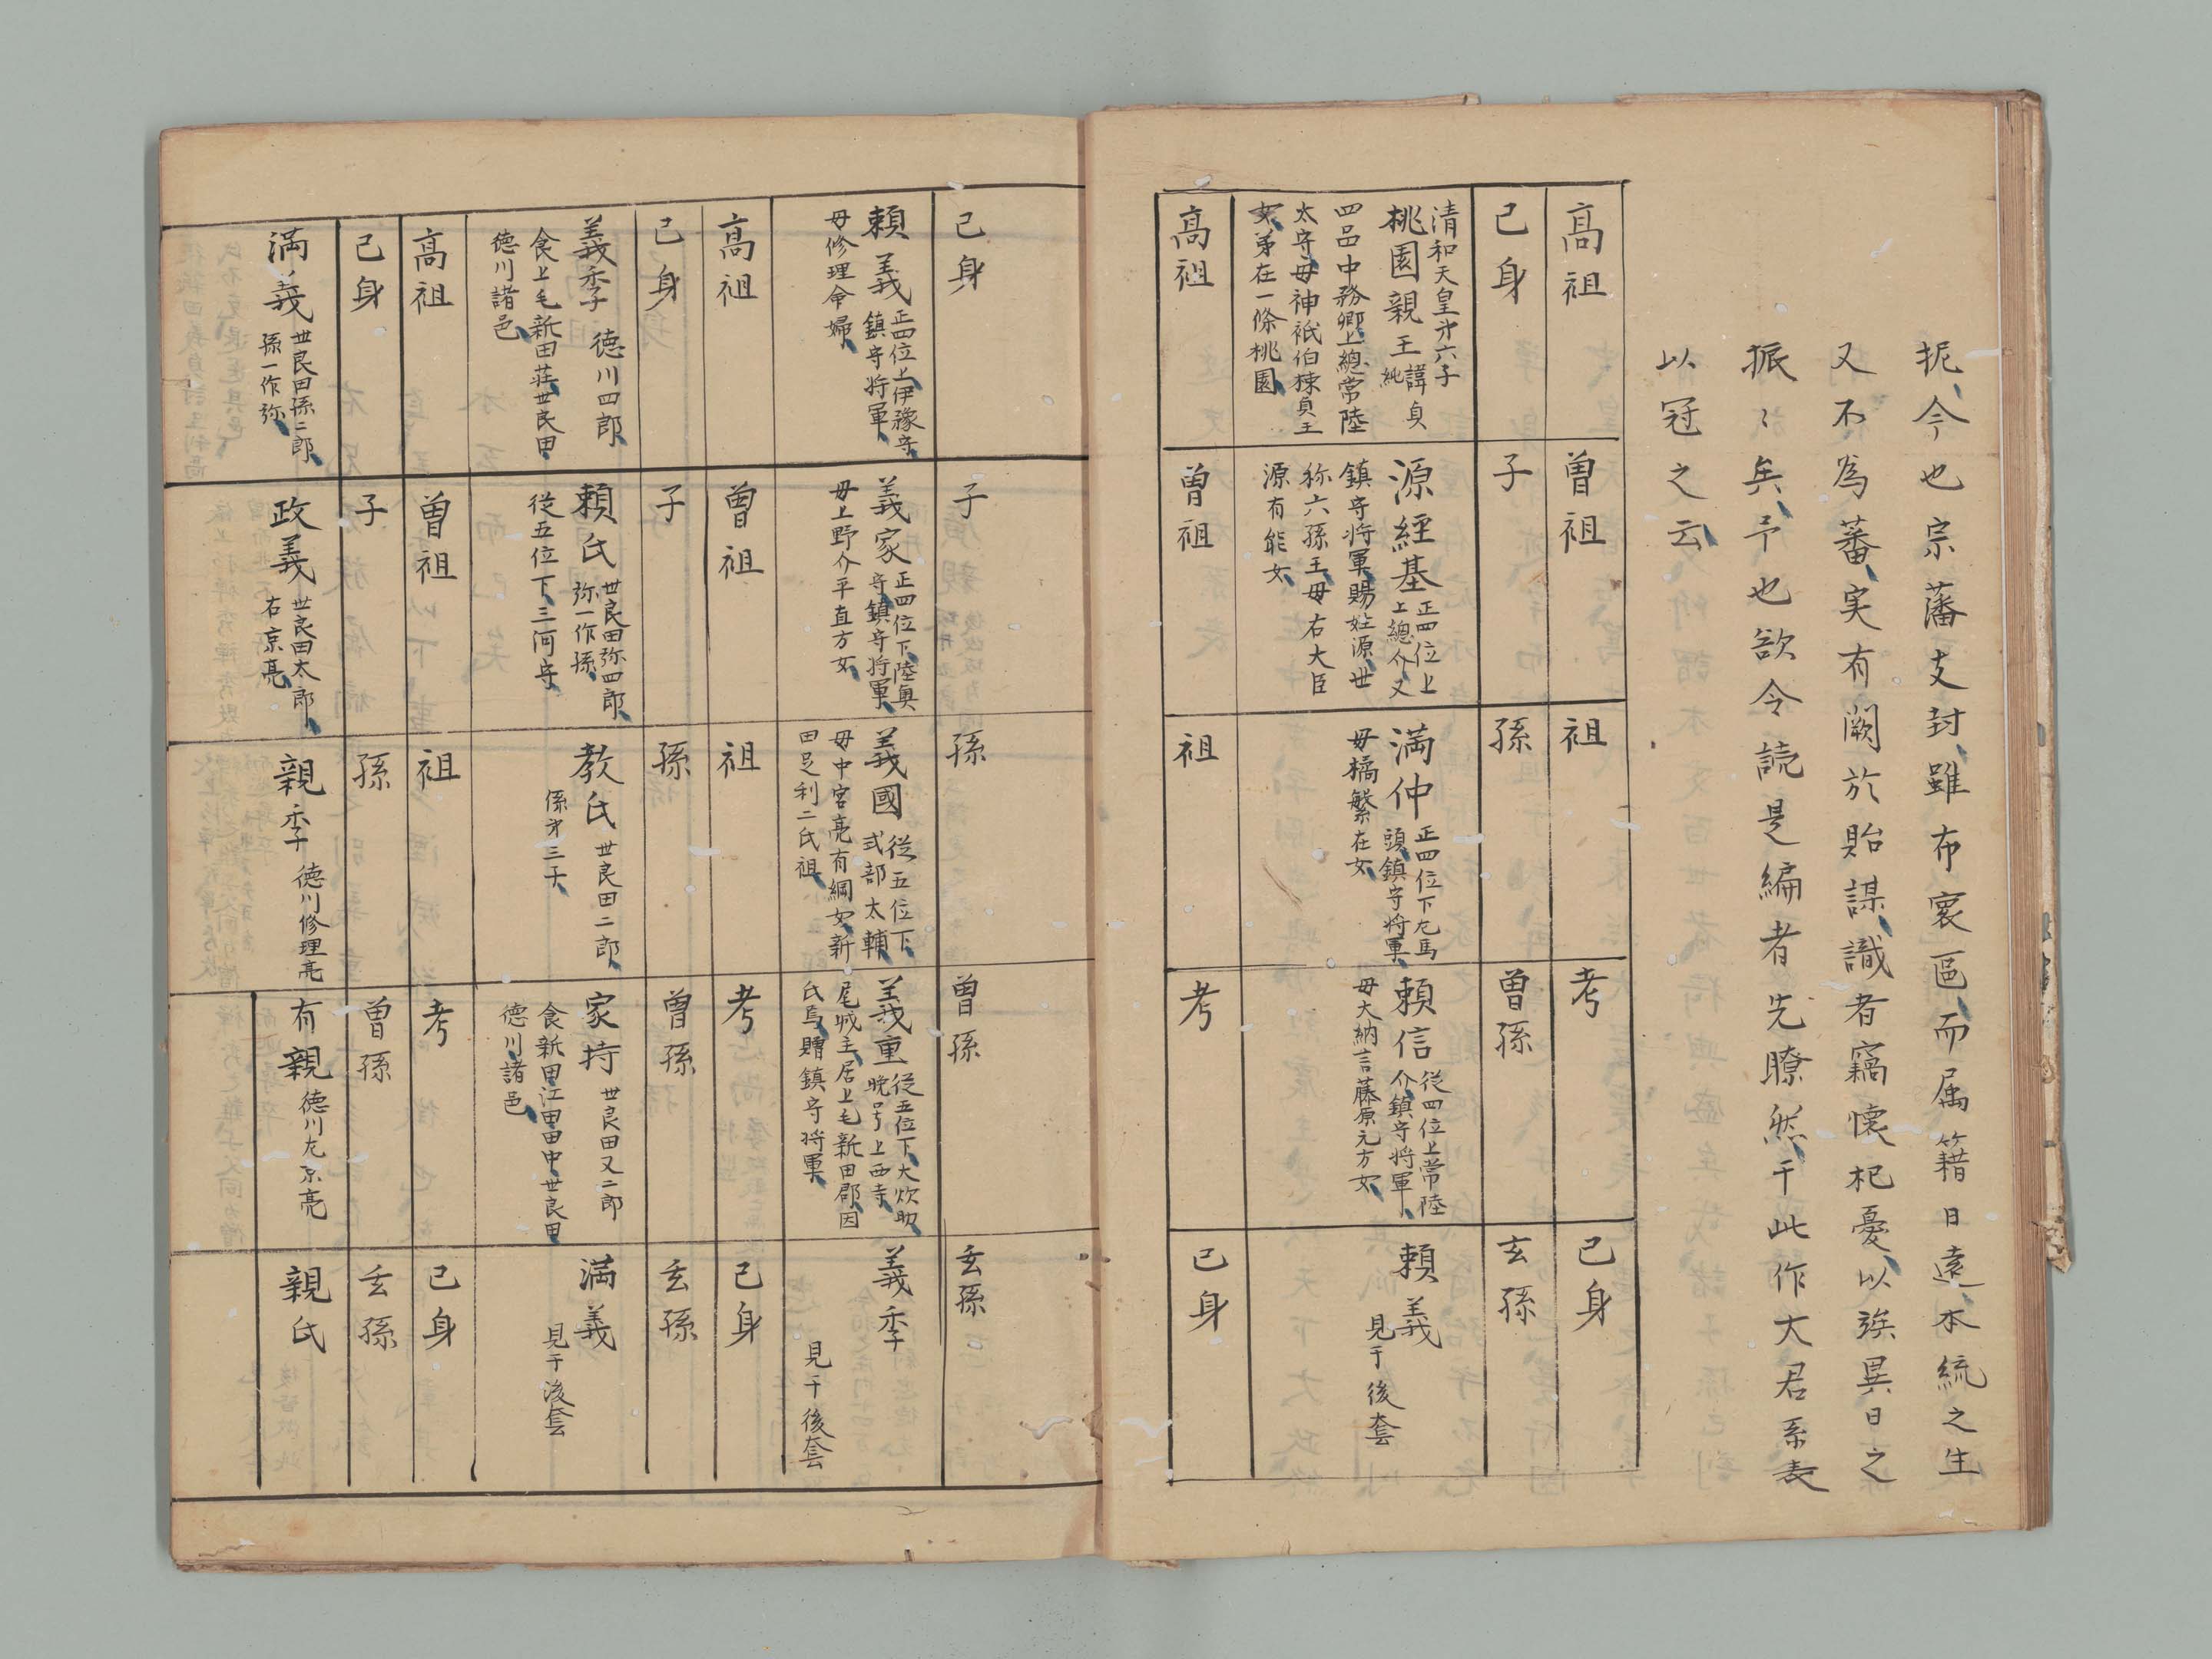 扼今也宗藩支封雖布寰區而属籍日遠本統之生
又不為蕃実有闕於貽謀識者竊懐杞憂以竢異日之
振〻矣予也欲令読是編者先瞭然于此作大君系表
以冠之云
高祖
曽祖
祖
考
己身
己身
子
孫
曽孫
玄孫
清和天皇第六子
桃園親王諱貞
純
四品中務卿上總常陸
太守母神祇伯棟貞王
女第在一條桃園
源経基正四位上
上總介又
鎮守将軍賜姓源世
称六孫王母右大臣
源有能女
満仲正四位下左馬
頭鎮守将軍
母橘繁在女
頼信従四位上常陸
介鎮守将軍
母大納言藤原元方女
頼義
見于後套
高祖
曽祖
祖
考
己身
己身
子
孫
曽孫
玄孫
頼義正四位上伊豫守
鎮守将軍
母修理命婦
義家正四位下陸奥
守鎮守将軍
母上野介平直方女
義國従五位下
式部太輔
母中宮亮有綱女新
田足利二氏祖
義重従五位下大炊助
晩号上西寺
尾城主居上毛新田郡因
氏焉贈鎮守将軍
義季
見于後套
高祖
曽祖
祖
考
己身
己身
子
孫
曽孫
玄孫
義季徳川四郎
食上毛新田荘世良田
徳川諸邑
頼氏世良田弥四郎
弥一作孫
従五位下三河守
教氏世良田二郎
係第三子
家持世良田又二郎
食新田江田田中世良田
徳川諸邑
満義
見于後套
高祖
曽祖
祖
考
己身
己身
子
孫
曽孫
玄孫
満義世良田孫二郎
孫一作弥
政義世良田太郎
右京亮
親季徳川修理亮
有親徳川左京亮
親氏